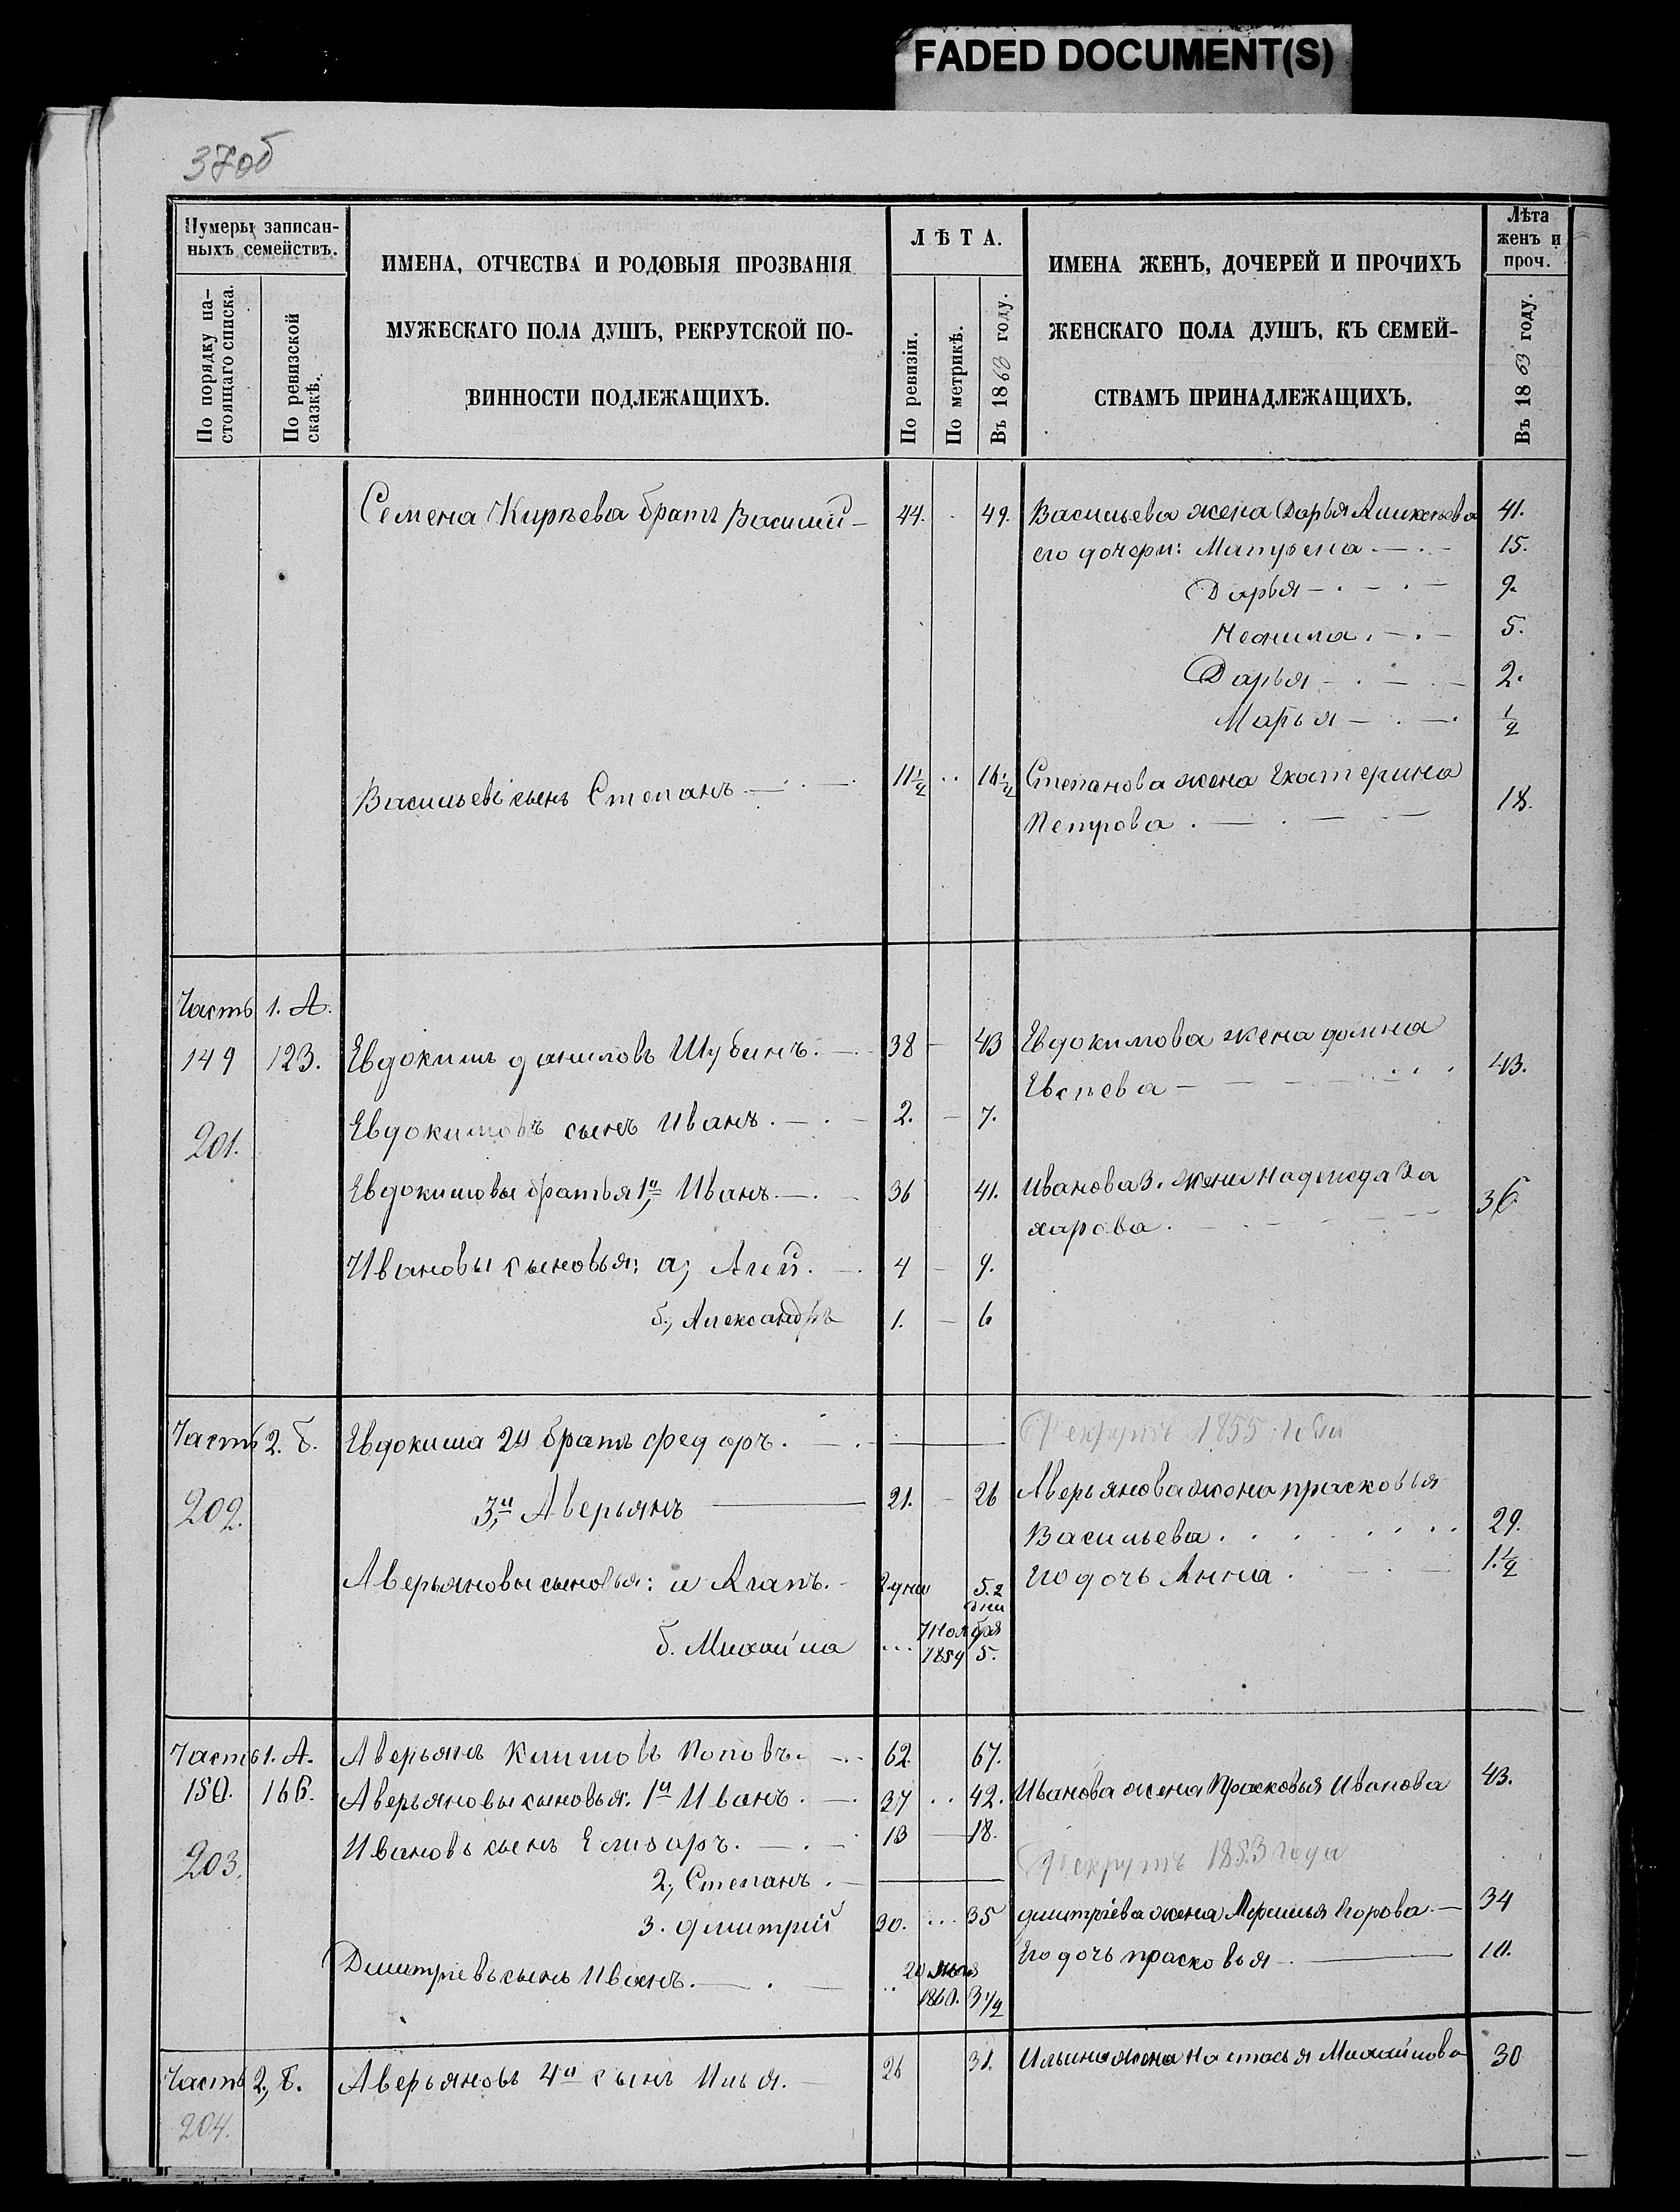 FADED DOCUMENT(S)
37об
Нумеры записан-
ныхъ семействъ.
По порядку на-
стоящаго списка.
По ревизской
сказкѣ.
ИМЕНА, ОТЧЕСТВА И РОДОВЫЯ ПРОЗВАНІЯ
МУЖЕСКАГО ПОЛА ДУШЪ, РЕКРУТСКОЙ ПО-
ВИННОСТИ ПОДЛЕЖАЩИХЪ.
ЛѢТА.
По ревизіи.
По метрикѣ.
Въ 1863 году.
ИМЕНА ЖЕНЪ, ДОЧЕРЕЙ И ПРОЧИХЪ
ЖЕНСКАГО ПОЛА ДУШЪ, КЪ СЕМЕЙ-
СТВАМЪ ПРИНАДЛЕЖАЩИХЪ.
Лѣта
женъ и
проч.
Въ 1863 году.
Семена Кирѣева братъ Василий 44. 49. Васильева жена Дарья Аликсѣева 41.
его дочери: Матрена 15.
Дарья 9.
Неонила 5.
Дарья 2.
Марья 1/2
Васильевъ сынъ Степанъ 11 1/2 16 1/2 Степанова жена Екатерина
Петрова 18.
Часть 1. А.
149 123. Евдокимъ даниловъ Шубинъ. 38 43 Евдокимова жена домна
Евсѣева 43.
201. Евдокимовъ сынъ Иванъ. 2. 7.
Евдокимовы братья 1й Иванъ 36 41. Иванова 3. жена надежда За
харова. 36
Ивановы сыновья: а, 4 9.
б, Александръ 1. 6
Часть 2. Б. Евдокима 2й братъ федоръ. Рекрутъ 1855 года
202. 3й Аверьянъ 21. 26 Аверьянова жена прасковья
Васильева 29.
Аверьяновы сыновья: а Агапъ. 2 дни 5. 2 дни Его дочь Анна. 1 1/2
б. Михаила 7 Ноября 1859 5.
Часть 1. А. Аверьянъ Климовъ Поповъ. 62 67.
150. 166. Аверьяновы сыновья: 1й Иванъ. 37 42. Иванова жена Прасковья Иванова 43.
203. Ивановъ сынъ Елизаръ. 13 18.
2, Степанъ. Рекрутъ 1853 года
3. дмитрий 30. 35 дмитріева жена Егорова 34
Его дочь прасковья 10.
Дмитріевъ сынъ Иванъ. 20 1860. 3 1/2
Часть 2, Б. Аверьяновъ 4й сынъ Илья. 26 31. Ильина жена Настасья Михайлова 30
204.